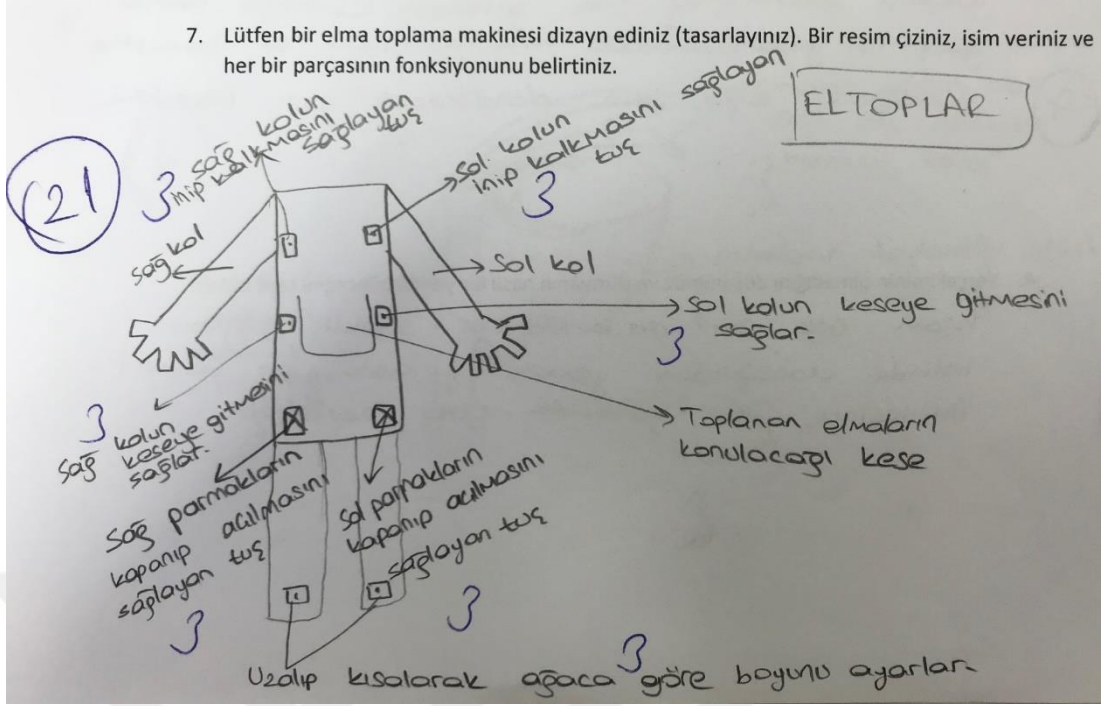 7. Lütfen bir elma toplama makinesi dizayn ediniz (tasarlayınız). Bir resim çiziniz, isim veriniz ve
her bir parçasının fonksiyonunu belirtiniz.
ELTOPLAR
21
sağ kolun
inip kalkmasını
sağlayan
tuş
3
Sol kolun
inip kalkmasını sağlayan
tuş
3
sağ kol
Sol kol
Sol kolun keseye gitmesini
sağlar.
3
3
Sağ kolun
keseye gitmesini
sağlar.
Toplanan elmaların
konulacağı kese
Sağ parmakların
kapanıp açılmasını
sağlayan tuş
3
Sol parmakların
kapanıp açılmasını
sağlayan tuş
3
3
Uzalıp kısalarak ağaca göre boyunu ayarlar.